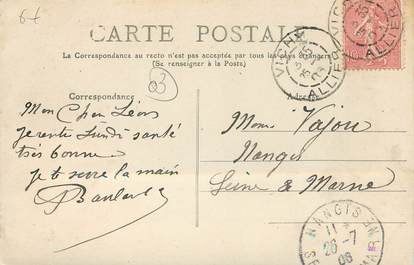 64
CARTE POSTALE
La Correspondance au recto n'est pas acceptée par tous les pays étrangers
(Se renseigner à la Poste)
Correspondance
VICHY
ALLIER
VICHY
ALLIER
03
Mon Cher Léon
je rentre Lundi santé
très bonne
je te serre la main
Monr Vajou
Nangis
Seine & Marne
NANGIS
11
26-7
06